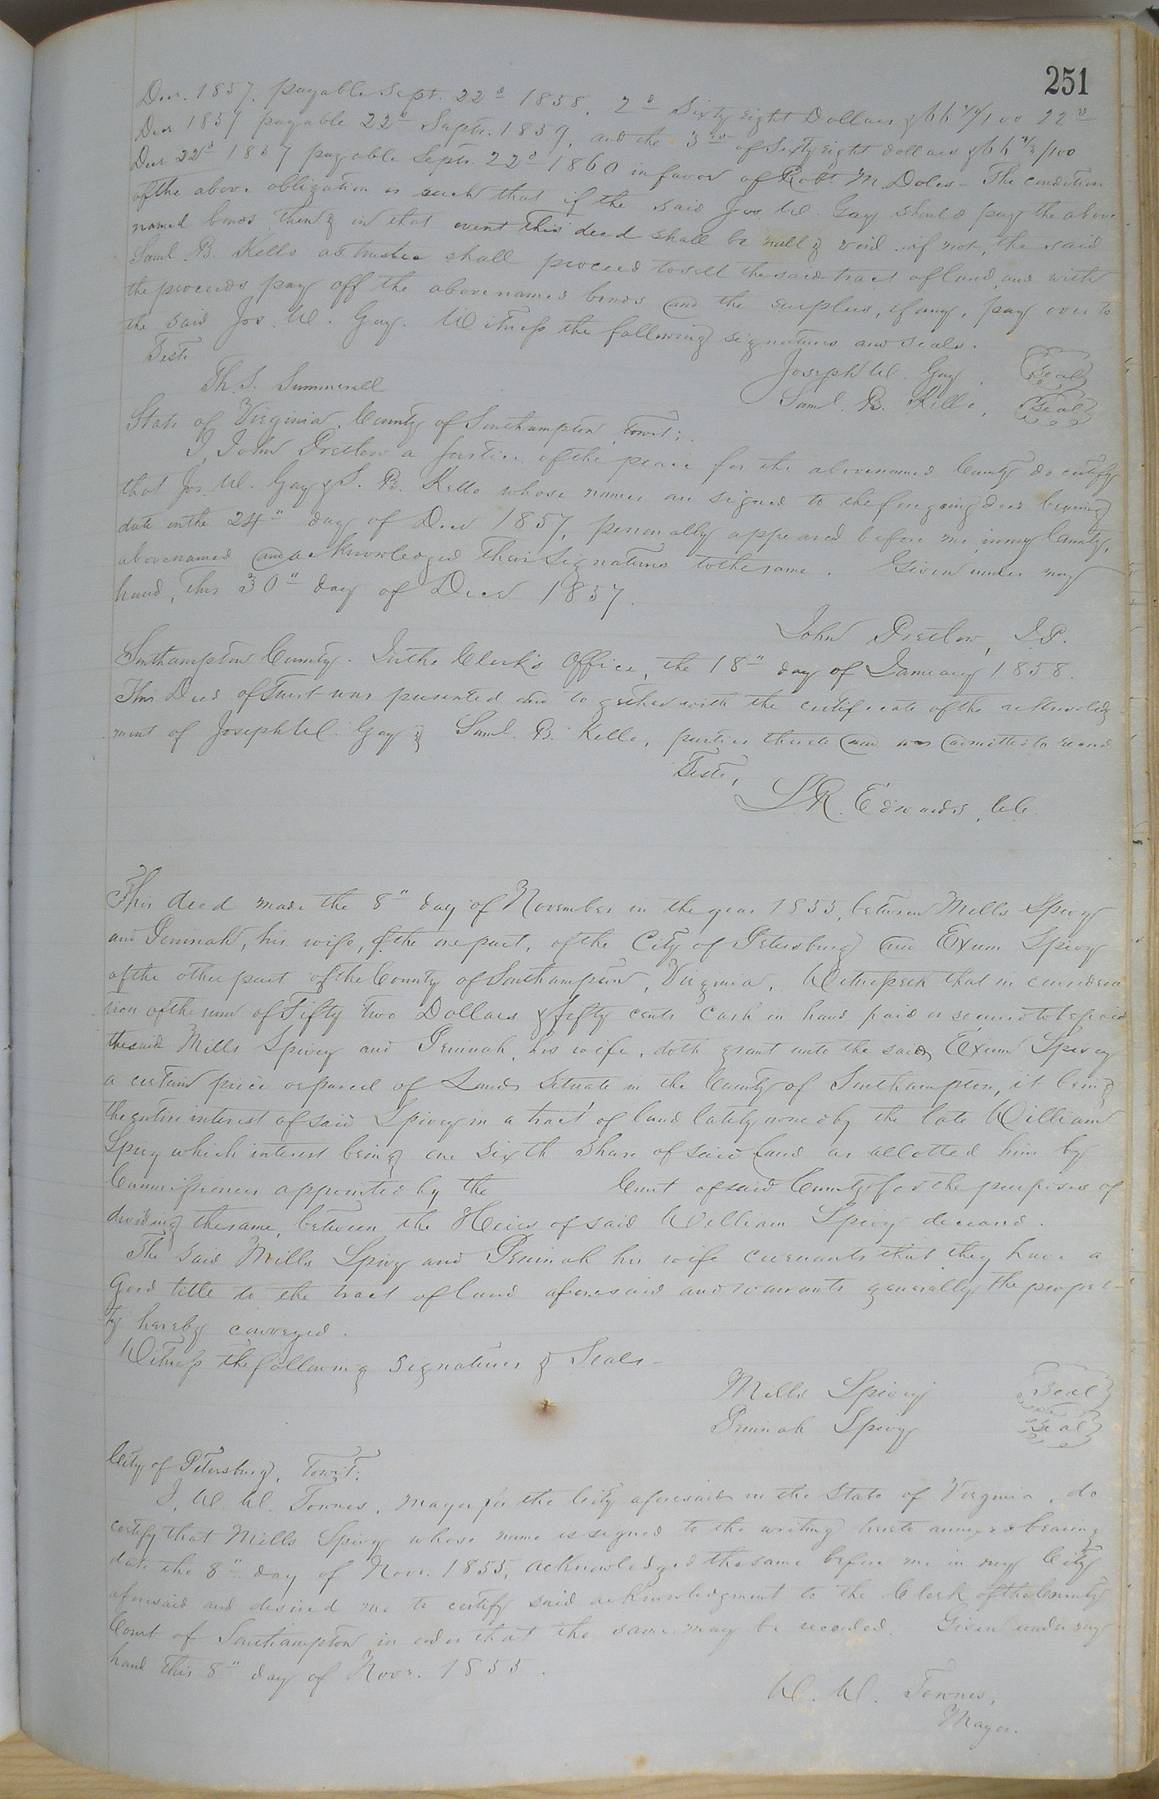 251
Decr. 1857. payable Sept. 22d 1858. 2d Sixty eight Dollars & 66 2/3/100 22d
Decr 1857 payable 22d Septr. 1859, and the 3rd of Sixty eight dollars & 66 2/3/100
Decr 22d 1857 payable Septr. 22d 1860 in favor of Robt M Doles - The condition
of the above obligation is such that if the said Jos. W. Gay should pay the above
named bonds then & in that event this deed shall be null & void. if not, the said
Saml B. Kello as trustee shall proceed to sell the said tract of land, and with
the proceeds pay off the abovenamed bonds and the surplus, if any, pay over to
the said Jos. W. Gay. Witness the following signatures and seals.
Teste
Joseph W. Gay. Seal
Th. S. Summerell
Saml. B. Kello, Seal
State of Virginia, County of Southampton, towit;
I, John Pretlow a Justice of the peace for the abovenamed County do certify
that Jos. W. Gay & S. B. Kello whose names are signed to the foregoing deed bearing
date on the 24" day of Decr 1857, personally appeared before me, in my County,
abovenamed and acknowledged their signatures to the same. Given under my
hand, this 30" day of Decr 1857.
John Pretlow, J.P.
Southampton County. In the Clerk's Office, the 18" day of January 1858.
This Deed of Trust was presented and together with the certificate of the acknowledg
ment of Joseph W. Gay & Saml. B. Kello, parties thereto and was admitted to record
Teste,
L. R. Edwards, C.C.
This deed made the 8" day of November in the year 1855, between Mills Spivey
and Peninah, his wife, of the one part, of the City of Petersburg and Exum Spivey
of the other part of the County of Southampton, Virginia, Witnesseth that in considera
tion of the sum of Fifty two Dollars & fifty cents cash in hand paid or secured to be paid
the said Mills Spivey and Peninah, his wife, doth grant unto the said Exum Spivey
a certain piece or parcel of Land, Situate in the County of Southampton, it being
the entire interest of said Spivey in a tract of land lately owned by the late William
Spivy which interest being one sixth share of said land as allotted him by
Commissioners appointed by the Court of said County for the purposes of
dividing the same, between the Heirs of said William Spivy deceased.
The said Mills Spivy and Peninah his wife covenants that they have a
Good title to the tract of land aforesaid and warrants generally the proper-
ty hereby conveyed.
Witness the following Signatures & Seals-
Mills Spivey Seal
Peninah Spivy Seal
City of Petersburg, Towit;
I, W. W. Townes, Mayor for the City aforesaid in the State of Virginia, do
certify that Mills Spivy whose name is signed to the writing hereto annexed bearing
date the 8" day of Novr. 1855, acknowledged the same before me in my City
aforesaid and desired me to certify said acknowledgment to the Clerk of the County
Court of Southampton in order that the same may be recorded. Given under my
hand this 8" day of Novr. 1855.
W. W. Townes,
Mayor.